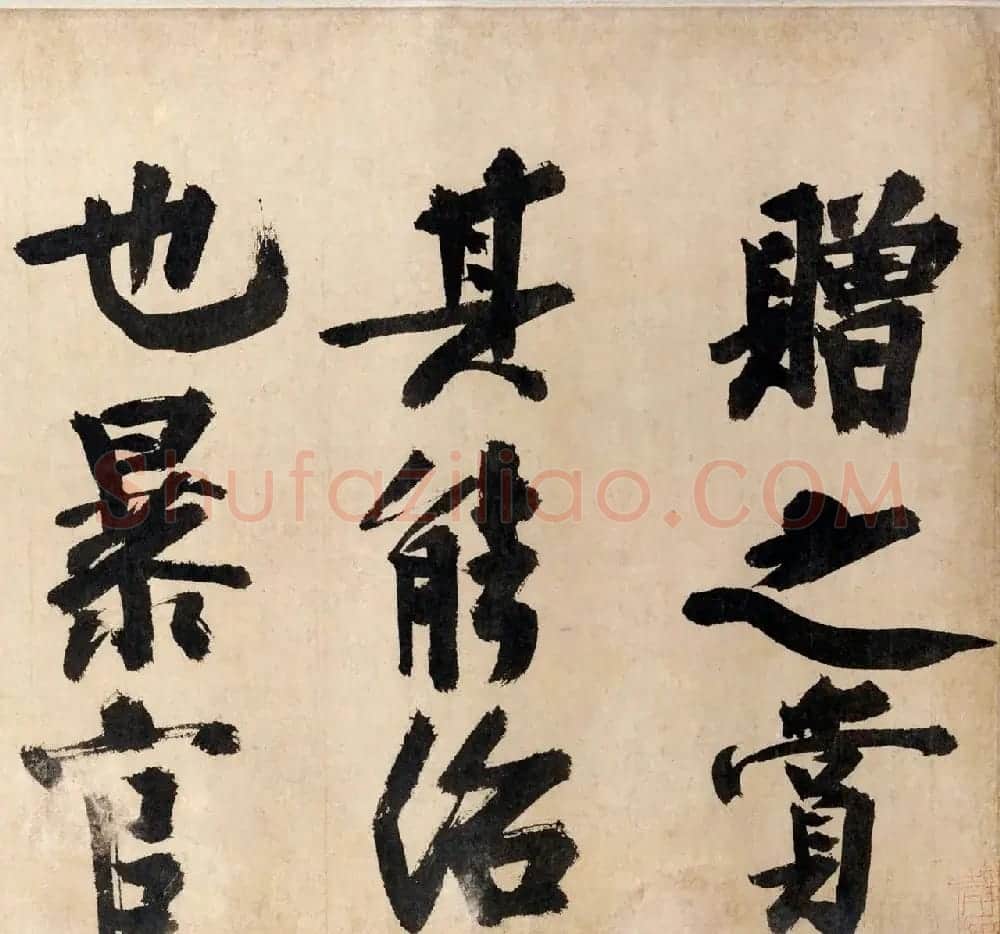 贈之賞
其能治
也暴官
Shufaziliao.COM